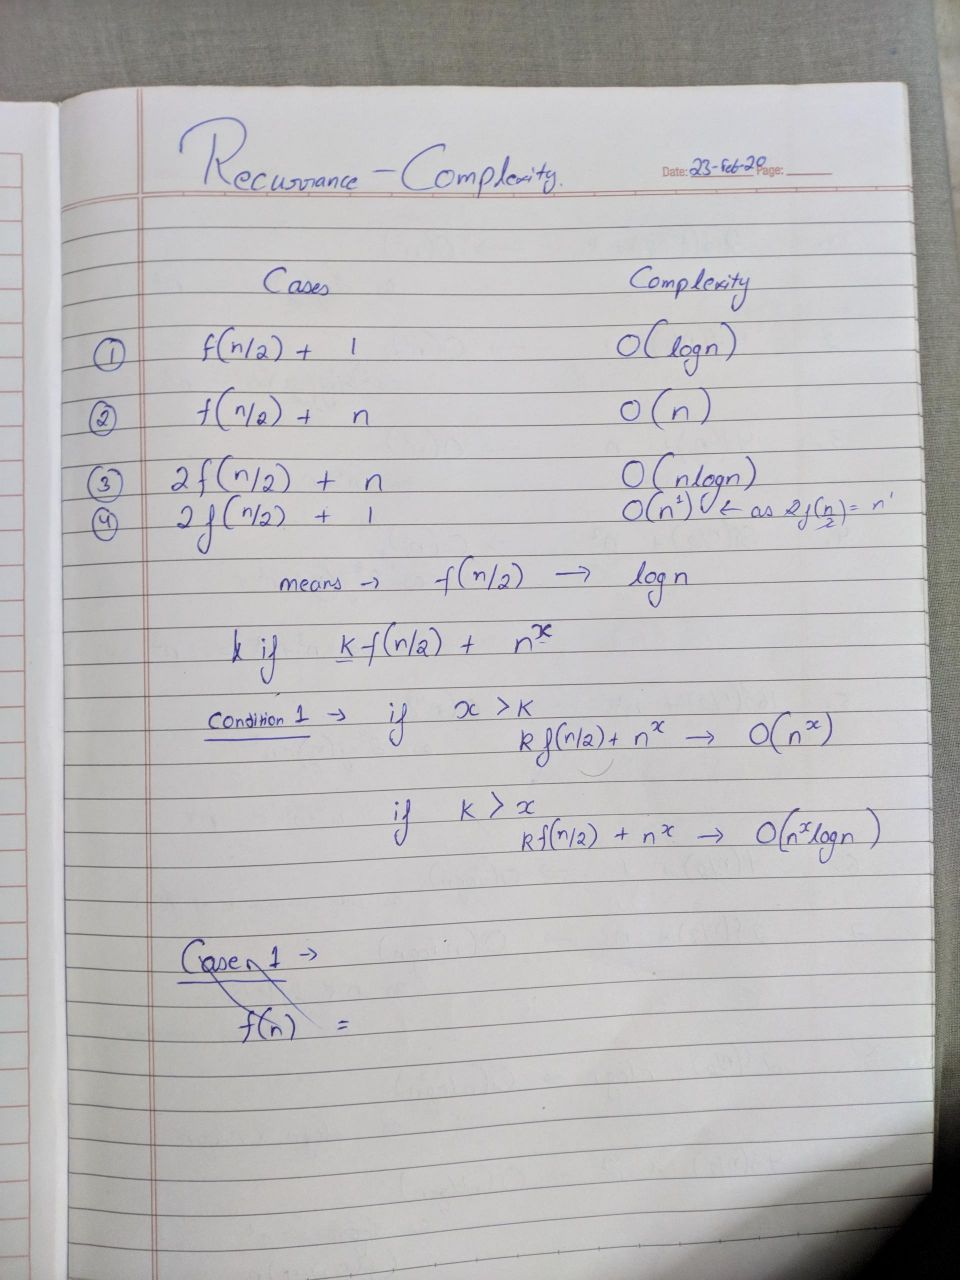 Recurrance - Complexity.
Date: 23-Feb-20 Page:
Cases Complexity
① f(n/2) + 1 O(logn)
② f(n/2) + n O(n)
③ 2f(n/2) + n O(nlogn)
④ 2f(n/2) + 1 O(n¹) ← as 2f(n/2) = n¹
means → f(n/2) → logn
if K f(n/2) + nˣ
Condition 1 → if x > K
k f(n/2) + nˣ → O(nˣ)
if K > x
k f(n/2) + nˣ → O(nˣlogn)
Case 1 →
f(n) =